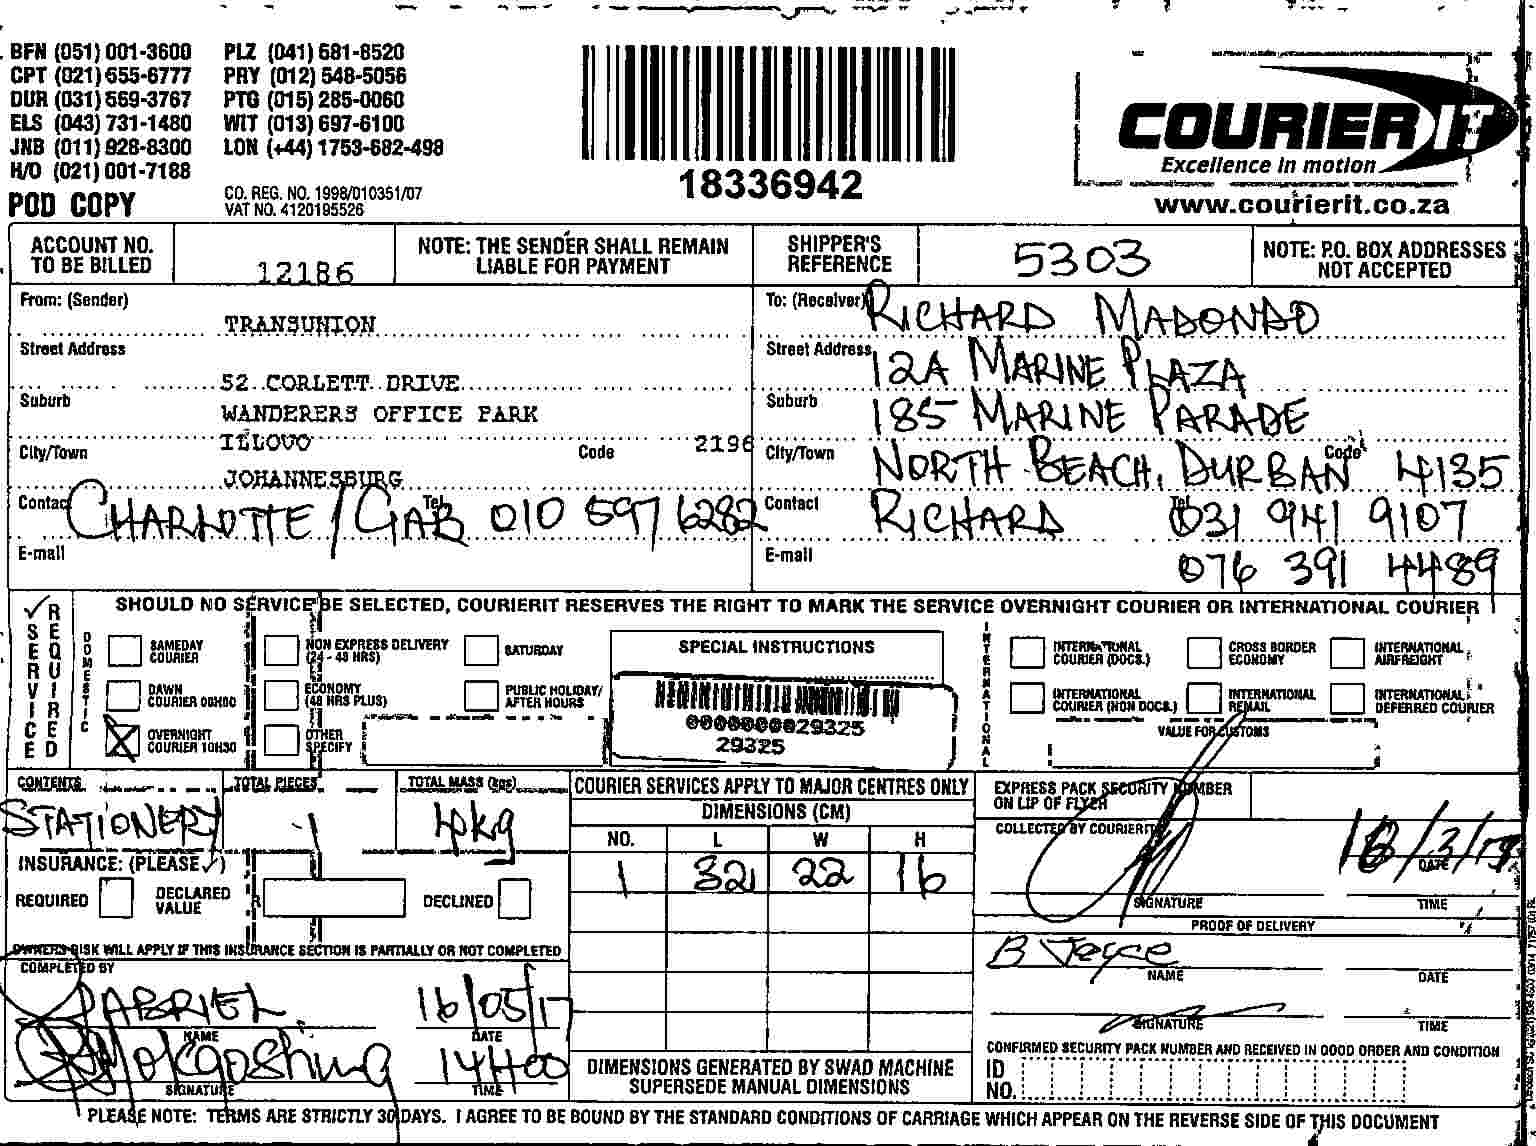 BFN (051) 001-3600 PLZ (041) 581-8520
CPT (021) 555-6777 PRY (012) 548-5056
DUR (031) 569-3767 PTG (015) 285-0060
ELS (043) 731-1480 WIT (013) 697-6100
JNB (011) 928-8300 LON (+44) 1753-682-498
H/O (021) 001-7188
POD COPY
CO. REG. NO. 1998/010351/07
VAT NO. 4120195526
18336942
COURIER IT
Excellence in motion
www.courierit.co.za
ACCOUNT NO. TO BE BILLED
12186
NOTE: THE SENDER SHALL REMAIN LIABLE FOR PAYMENT
SHIPPER'S REFERENCE
5303
NOTE: P.O. BOX ADDRESSES NOT ACCEPTED
From: (Sender)
TRANSUNION
Street Address
52 CORLETT DRIVE
Suburb
WANDERERS OFFICE PARK
ILLOVO
City/Town
Code 2196
JOHANNESBURG
Contact CHARLOTTE/GAB Tel 010 597 6282
E-mail
To: (Receiver) RICHARD MADONDO
Street Address 12A MARINE PLAZA
Suburb 185 MARINE PARADE
City/Town NORTH BEACH, DURBAN Code 4135
Contact RICHARD Tel 031 941 9107
E-mail 076 391 4489
SERVICE REQUIRED
SHOULD NO SERVICE BE SELECTED, COURIERIT RESERVES THE RIGHT TO MARK THE SERVICE OVERNIGHT COURIER OR INTERNATIONAL COURIER
DOMESTIC
SAMEDAY COURIER
NON EXPRESS DELIVERY (24 - 48 HRS)
SATURDAY
DAWN COURIER 08H00
ECONOMY (48 HRS PLUS)
PUBLIC HOLIDAY/ AFTER HOURS
OVERNIGHT COURIER 10H30
OTHER SPECIFY
SPECIAL INSTRUCTIONS
0000000029325
29325
INTERNATIONAL
INTERNATIONAL COURIER (DOCS.)
CROSS BORDER ECONOMY
INTERNATIONAL AIRFREIGHT
INTERNATIONAL COURIER (NON DOCS.)
INTERNATIONAL REMAIL
INTERNATIONAL DEFERRED COURIER
VALUE FOR CUSTOMS
CONTENTS
STATIONERY
TOTAL PIECES
1
TOTAL MASS (kgs)
INSURANCE: (PLEASE ✓)
REQUIRED
DECLARED VALUE
R
DECLINED
OWNERS RISK WILL APPLY IF THIS INSURANCE SECTION IS PARTIALLY OR NOT COMPLETED
COMPLETED BY
GABRIEL
16/05/17
NAME
DATE
14H00
SIGNATURE
TIME
COURIER SERVICES APPLY TO MAJOR CENTRES ONLY
DIMENSIONS (CM)
NO. L W H
1 32 22 16
DIMENSIONS GENERATED BY SWAD MACHINE SUPERSEDE MANUAL DIMENSIONS
EXPRESS PACK SECURITY NUMBER ON LIP OF FLYER
COLLECTED BY COURIERIT
DATE
SIGNATURE
TIME
PROOF OF DELIVERY
B Joyce
NAME
DATE
SIGNATURE
TIME
CONFIRMED SECURITY PACK NUMBER AND RECEIVED IN GOOD ORDER AND CONDITION
ID NO.
PLEASE NOTE: TERMS ARE STRICTLY 30 DAYS. I AGREE TO BE BOUND BY THE STANDARD CONDITIONS OF CARRIAGE WHICH APPEAR ON THE REVERSE SIDE OF THIS DOCUMENT